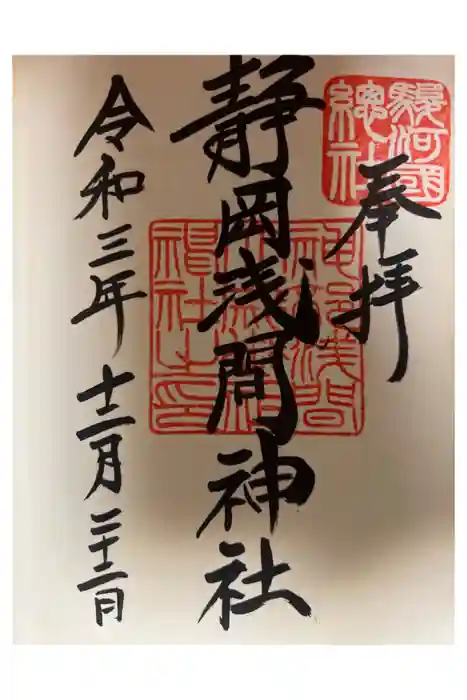 奉拝
駿河國
總社
静岡浅間神社
令和三年十二月二十二日